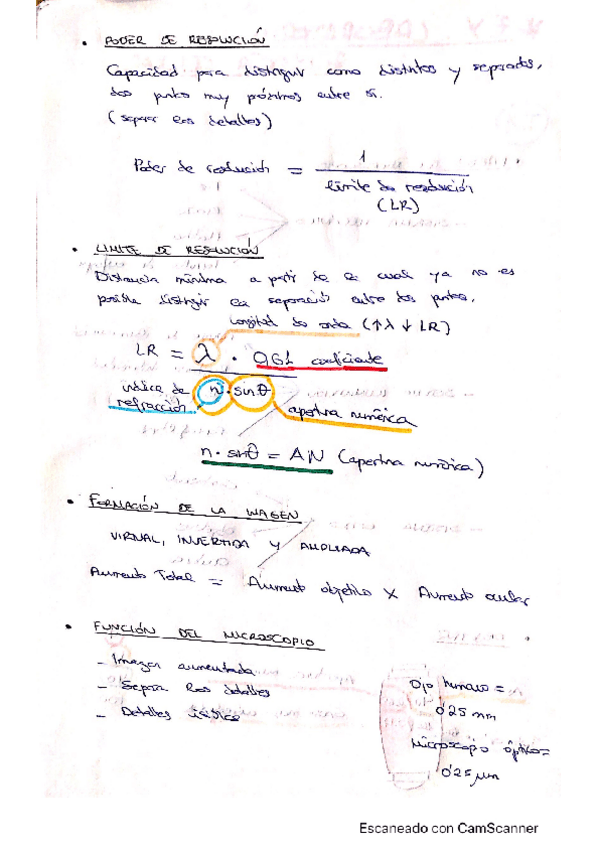 • PODER DE RESOLUCIÓN
Capacidad para distinguir como distintos y separados,
dos puntos muy próximos entre si.
(separar los detalles)
Poder de resolución = 1
límite de resolución
(LR)
• LIMITE DE RESOLUCIÓN
Distancia mínima a partir de la cual ya no es
posible distinguir la separació entre dos puntos.
Longitud de onda (↑λ ↓ LR)
LR = λ · 0,61 coeficiente
índice de n · sinθ
refracción. apertura numérica
n · sinθ = AN (apertura numérica)
• FORMACIÓN DE LA IMAGEN
VIRTUAL, INVERTIDA Y AMPLIADA
Aumento Total = Aumento objetivo x Aumento ocular
• FUNCIÓN DEL MICROSCOPIO
- Imagen aumentada
- Separar los detalles
- Detalles
Ojo humano =
0'25 mm
Microscopio óptico =
0'25 µm
Escaneado con CamScanner